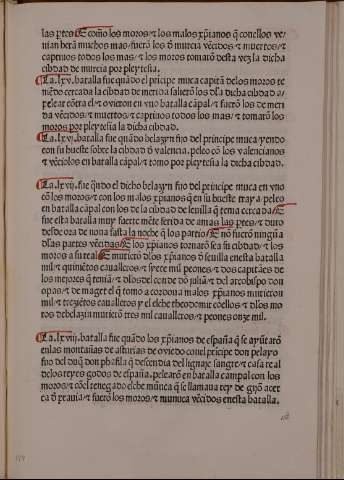 las p̃tes ⁊ como los moros ⁊ los malos xp̃ianos q̃ conellos ve/
nian berã muchos mas / fuerõ los d̃ murcia vẽcidos ⁊ muertos / ⁊
captiuos todos los mas / ⁊ los moros tomarõ desta vez la dicha
cibdad de murcia por pleytesia.
La .lxv. batalla fue quãdo el p̃rcipe muca capitã delos moros te
niẽdo cercada la cibdad de merida saliерõ los d̃la dicha cibdad a
pelear cõtra el / ⁊ ovieron en vno batalla cãpal / ⁊ fuerõ los de meri
da vẽcidos / ⁊ muertos / ⁊ captiuos todos los mas / ⁊ tomarõ los
moros por pleytesia la dicha cibdad.
La .lxvi. batalla fue quãdo belazyn fijo del principe muca yendo
con su hueste sobre la cibdad d̃ valencia. peleo cõ los valencianos
⁊ vẽciolos en batalla cãpal / ⁊ tomo por pleytesia la dicha cibdad.
La .lxvij. fue q̃ndo el dicho belazyn fijo del principe muca en vno
cõ los moros / ⁊ con los malos xp̃ianos q̃ en su hueste traya. peleo
en batalla cãpal con los de la cibdad de seuilla q̃ tenia cercada / ⁊
fue esta batalla muy fuerte mẽte ferida de amas las p̃tes / ⁊ duro
desde ora de nona fasta la noche q̃ los partio / ⁊ nõ fuerõ ningũa
d̃las partes vẽcidas / ⁊ los xp̃ianos tornarõ se a su cibdad / ⁊ los
moros a su real / ⁊ murierõ d̃los xp̃ianos d̃ seuilla enesta batalla
mil ⁊ quiniẽtos caualleros / ⁊ siete mil peones / ⁊ dos capitães de
los mejores q̃ teniã / ⁊ d̃los del con de dõ juliã / ⁊ del arcobispo don
opas / ⁊ de maget el q̃ tomo a cordoua ⁊ malos xp̃ianos murieron
mil ⁊ trezietos caualleros y el elche theodomir coellos / ⁊ d̃los mo
ros debelazin murierõ tres mil caualleros / ⁊ peones onze mil.
La .lxviij. batalla fue quãdo los xp̃ianos de españa q̃ se ayũtarõ
enlas montañas de asturias de ouiedo conel p̃ricipe don pelayo
fijo del duq̃ don phafila q̃ descendia del lignaje sangre / ⁊ casa re al
delos reyes godos de españa. pelearõ en batalla campal con los
moros / ⁊ cõel renegado elche muñca q̃ se llamaua rey de gijõ acer
ca d̃ prauia / ⁊ fuerõ los moros / ⁊ munuca vẽcidos enesta batalla.